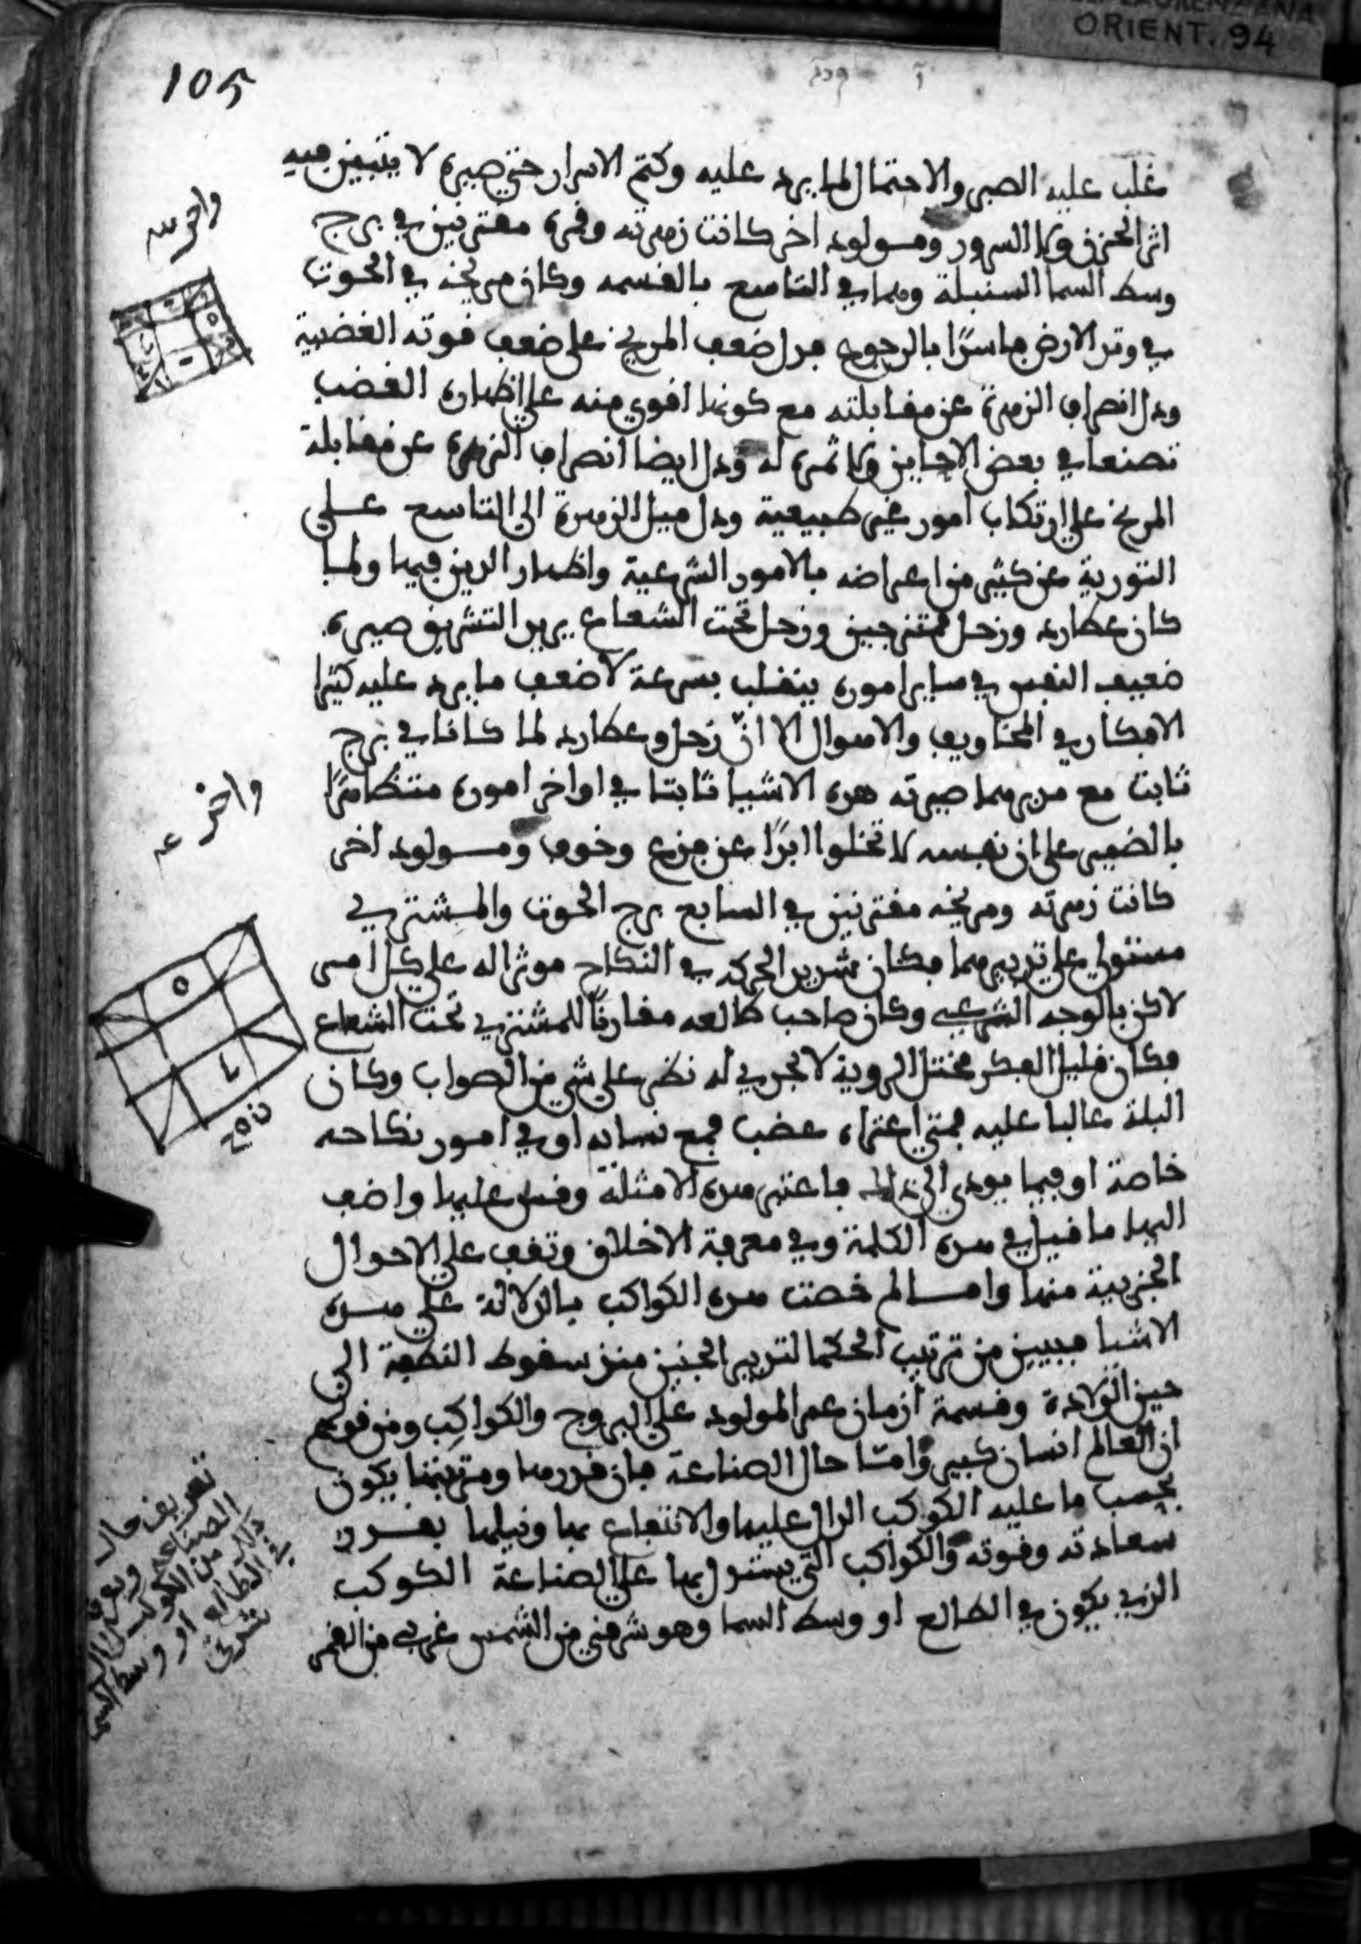 ORIENT. 94
105
غلب عليه الصبر والاحتمال لما يرد عليه وكتم الاسرار حتى صيره لا يتبين فيه
اثر الحزن ولا السرور ومولود اخر كانت زهرته وقمره مقترنين في برج
وسط السما السنبلة وهما في التاسع بالقسمه وكان مريخه في الحوت
في وتر الارض فاسدًا بالرجوع فدل ضعف المريخ على ضعف قوته الغضبية
ودل انصراف الزهرة عن مقابلته مع كونها اقوى منه على اظهاره الغضب
تصنعا في بعض الاحايين ولا ثمره له ودل ايضا انصراف الزهره عن مقابلة
المريخ على ارتكاب امور غير طبيعية ودل ميل الزهرة الى التاسع على
التورية عن كثير من اعراضه بالامور الشرعية واظهار الدين فيها ولما
كان عطارد وزحل ممتزجين وزحل تحت الشعاع يريد التشريق صيره
ضعيف النفس في ساير اموره ينقلب بسرعة لاضعف ما يرد عليه كثير
الافكار في المخاويف والاهوال الا ان زحل وعطارد لما كانا في برج
ثابت مع مدبرهما صيرته هذه الاشيا ثابتا في اواخر اموره متظاهرًا
بالصبر على ان نفسه لا تخلوا ابدًا عن جزع وخوف ومولود اخر
كانت زهرته ومريخه مقترنين في السابع برج الحوت والمشتري
مستولي على تدبيرهما فكان شديد الحركه في النكاح موثرا له على كل امر
لاكن بالوجه الشرعي وكان صاحب طالعه مقارنًا للمشتري تحت الشعاع
فكان قليل الفكر مختل الروية لا يجري له نظر على شي من الصواب وكان
البله غالبا عليه فمتى اعتراه غضب فمع نسائه او في امور نكاحه
خاصة او فيما يودي الى ذلك فاعتبر هذه الامثلة وقس عليها واضف
اليها ما قيل في هذه الكلمة وفي معرفة الاخلاق وتقف على الاحوال
الجزيية منها واما لم خصت هذه الكواكب بالدلالة على هذه
الاشيا فبيين من ترتيب الحكما لتدبير الجنين منذ سقوط النطفة الى
حين الولادة وقسمة ازمان عمر المولود على البروج والكواكب ومن قولهم
ان العالم انسان كبير واما حال الصناعة فان قدرها ومرتبتها يكون
بحسب ما عليه الكوكب الدال عليها والانتفاع بها ونيلها بقدر
سعادته وقوته والكواكب التي يستدل بها على الصناعة الكوكب
الذي يكون في الطالع او وسط السما وهو شرقي من الشمس غربي من القمر
واخر
واخر
تعريف حال
الصناعه ويعرف
ذلك من الكوكب
في الطالع او وسط السما
شرقي